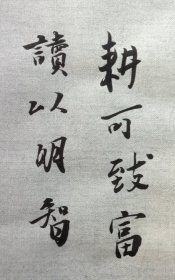 耕可致富
讀以明智